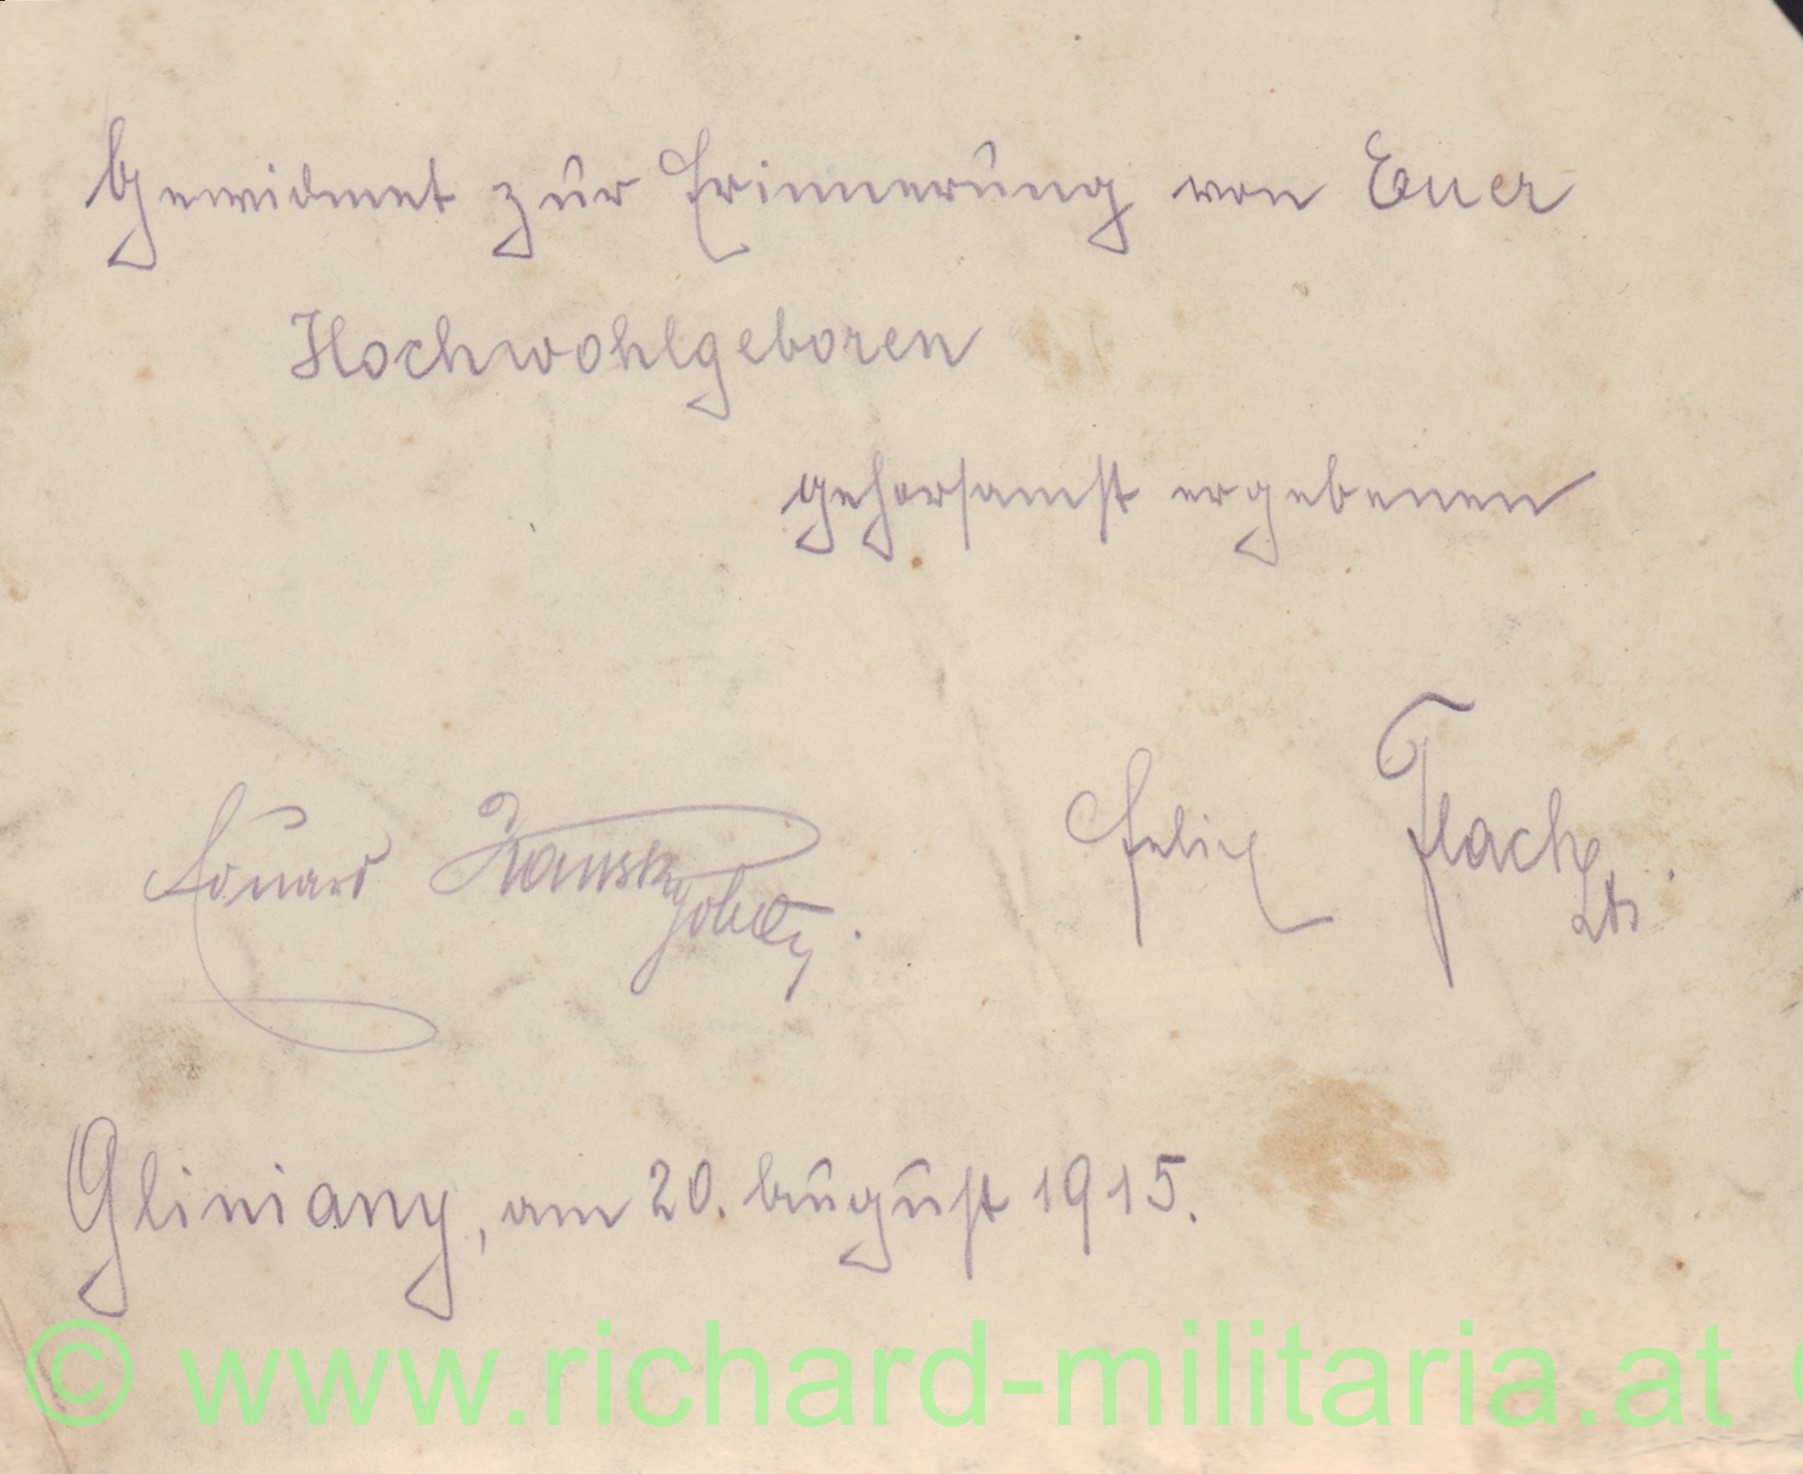 Gewidmet zur Erinnerung von Euer
Hochwohlgeboren
gehorsamst ergebenen
Eduard
Felix Flach Lt.
Gliniany, am 20. August 1915.
© www.richard-militaria.at ©